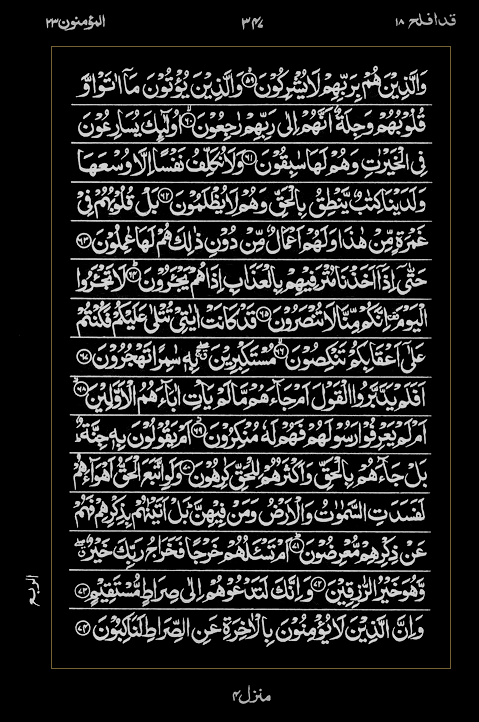 قد افلح ١٨ ٣٤٧ المؤمنون ٢٣
وَالَّذِيْنَ هُمْ بِرَبِّهِمْ لَا يُشْرِكُوْنَ ۙ﴿۵۹﴾ وَالَّذِيْنَ يُؤْتُوْنَ مَاۤ اٰتَوْا وَّ
قُلُوْبُهُمْ وَجِلَةٌ اَنَّهُمْ اِلٰى رَبِّهِمْ رٰجِعُوْنَ ۙ﴿۶۰﴾ اُولٰٓئِكَ يُسَارِعُوْنَ
فِى الْخَيْرٰتِ وَهُمْ لَهَا سٰبِقُوْنَ ﴿۶۱﴾ وَلَا نُكَلِّفُ نَفْسًا اِلَّا وُسْعَهَا
وَلَدَيْنَا كِتٰبٌ يَّنْطِقُ بِالْحَقِّ وَهُمْ لَا يُظْلَمُوْنَ ﴿۶۲﴾ بَلْ قُلُوْبُهُمْ فِىْ
غَمْرَةٍ مِّنْ هٰذَا وَلَهُمْ اَعْمَالٌ مِّنْ دُوْنِ ذٰلِكَ هُمْ لَهَا عٰمِلُوْنَ ﴿۶۳﴾
حَتّٰۤى اِذَاۤ اَخَذْنَا مُتْرَفِيْهِمْ بِالْعَذَابِ اِذَا هُمْ يَجْـَٔرُوْنَ ؕ﴿۶۴﴾ لَا تَجْـَٔرُوا
الْيَوْمَ ۟ اِنَّكُمْ مِّنَّا لَا تُنْصَرُوْنَ ﴿۶۵﴾ قَدْ كَانَتْ اٰيٰتِىْ تُتْلٰى عَلَيْكُمْ فَكُنْتُمْ
عَلٰٓى اَعْقَابِكُمْ تَنْكِصُوْنَ ۙ﴿۶۶﴾ مُسْتَكْبِرِيْنَ ۖ بِهٖ سٰمِرًا تَهْجُرُوْنَ ﴿۶۷﴾
اَفَلَمْ يَدَّبَّرُوا الْقَوْلَ اَمْ جَآءَهُمْ مَّا لَمْ يَاْتِ اٰبَآءَهُمُ الْاَوَّلِيْنَ ۫﴿۶۸﴾
اَمْ لَمْ يَعْرِفُوْا رَسُوْلَهُمْ فَهُمْ لَهٗ مُنْكِرُوْنَ ۫﴿۶۹﴾ اَمْ يَقُوْلُوْنَ بِهٖ جِنَّةٌ ؕ
بَلْ جَآءَهُمْ بِالْحَقِّ وَاَكْثَرُهُمْ لِلْحَقِّ كٰرِهُوْنَ ﴿۷۰﴾ وَلَوِ اتَّبَعَ الْحَقُّ اَهْوَآءَهُمْ
لَفَسَدَتِ السَّمٰوٰتُ وَالْاَرْضُ وَمَنْ فِيْهِنَّ ؕ بَلْ اَتَيْنٰهُمْ بِذِكْرِهِمْ فَهُمْ
عَنْ ذِكْرِهِمْ مُّعْرِضُوْنَ ؕ﴿۷۱﴾ اَمْ تَسْـَٔلُهُمْ خَرْجًا فَخَرَاجُ رَبِّكَ خَيْرٌ ۖ
وَّهُوَ خَيْرُ الرّٰزِقِيْنَ ﴿۷۲﴾ وَاِنَّكَ لَتَدْعُوْهُمْ اِلٰى صِرَاطٍ مُّسْتَقِيْمٍ ﴿۷۳﴾
وَاِنَّ الَّذِيْنَ لَا يُؤْمِنُوْنَ بِالْاٰخِرَةِ عَنِ الصِّرَاطِ لَنٰكِبُوْنَ ﴿۷۴﴾
الربع
منزل ۴